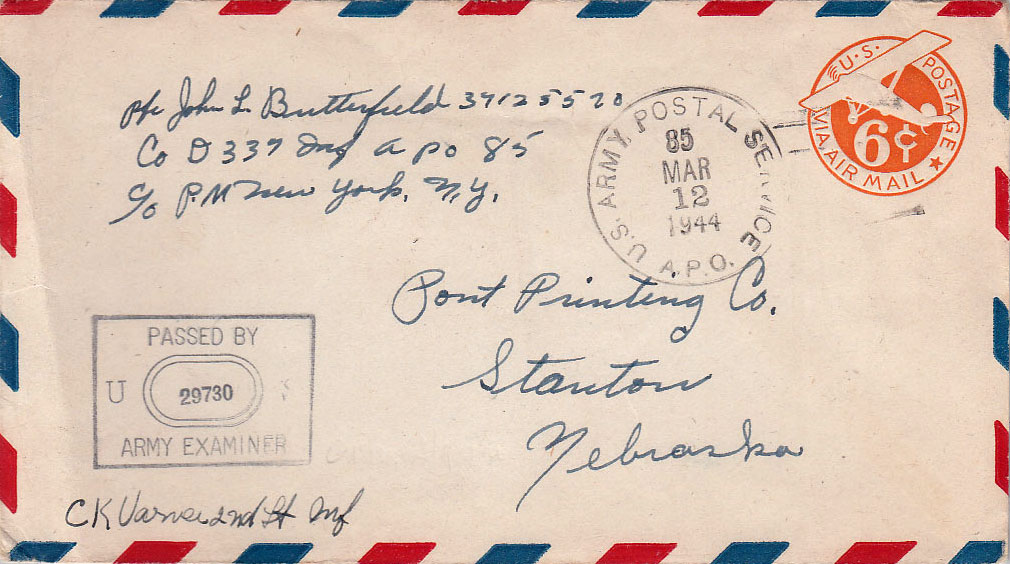 Pfc John L. Butterfield 37125520
Co D 337 Inf A P O 85
c/o P.M New York, N.Y.
U.S. ARMY POSTAL SERVICE
A.P.O.
85
MAR
12
1944
U.S. POSTAGE
6¢
VIA AIR MAIL
Pont Printing Co.
Stanton
Nebraska
PASSED BY
U S
29730
ARMY EXAMINER
CK Varner 2nd Lt Inf